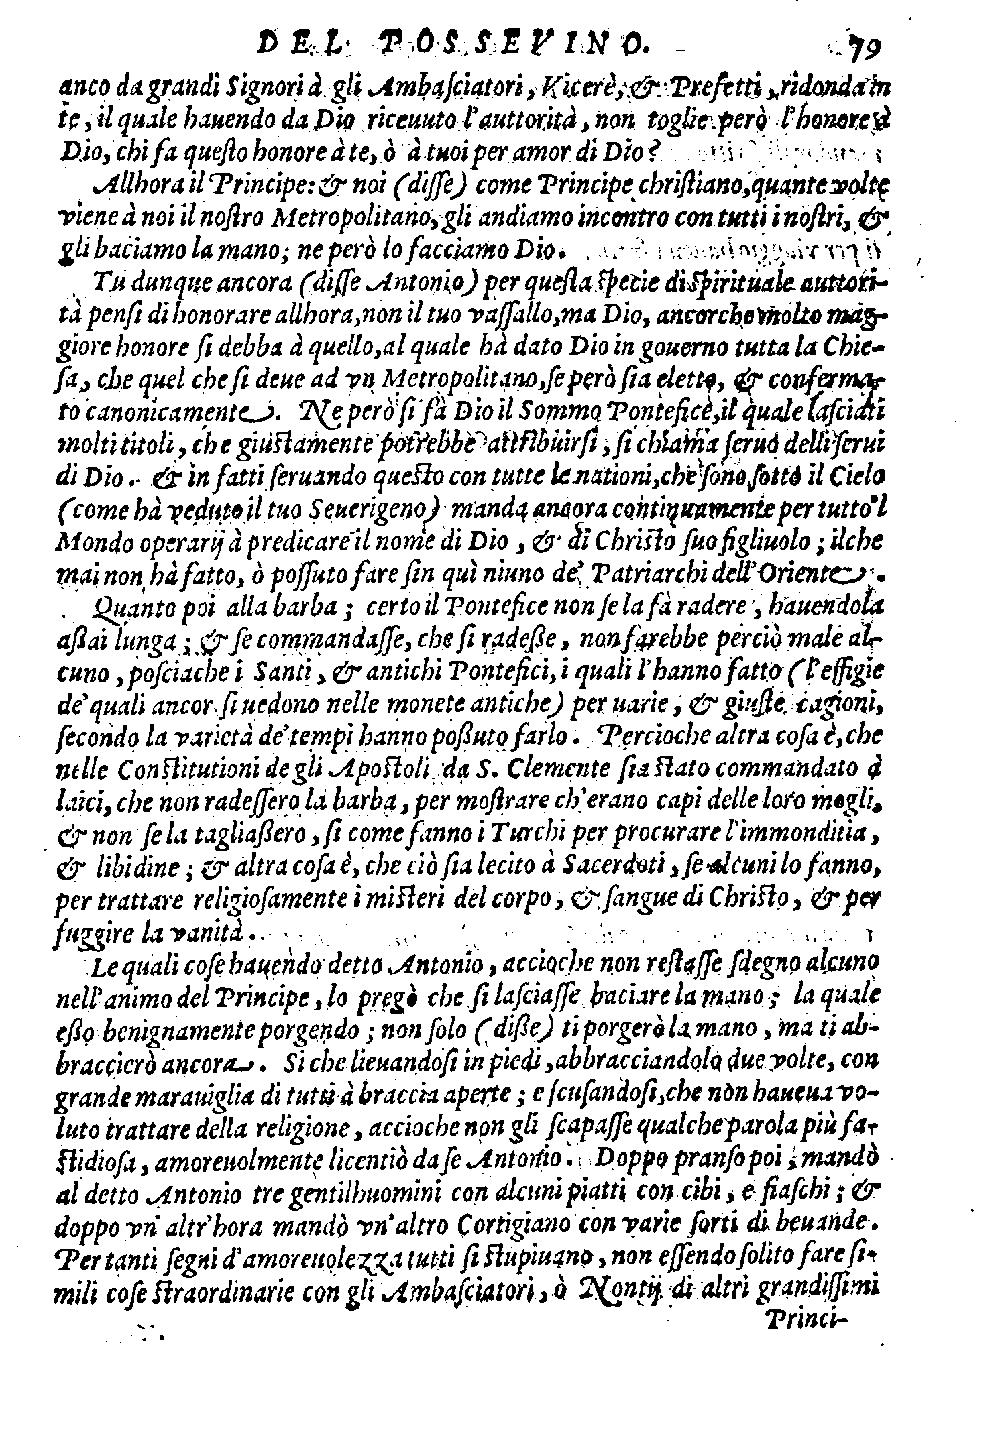 DEL POSSEVINO. 79
anco da grandi Signori à gli Ambaſciatori, Vicerè, & Prefetti, ridonda in
te, il quale hauendo da Dio riceuuto l'auttorità, non toglie però l'honore à
Dio, chi fa queſto honore à te, ò à tuoi per amor di Dio?
Allhora il Principe: & noi (diſſe) come Principe chriſtiano, quante volte
viene à noi il noſtro Metropolitano, gli andiamo incontro con tutti i noſtri, &
gli baciamo la mano; ne però lo facciamo Dio.
Tu dunque ancora (diſſe Antonio) per queſta ſpecie di ſpirituale auttori-
tà penſi di honorare allhora, non il tuo vaſſallo, ma Dio, ancorche molto mag-
giore honore ſi debba à quello, al quale hà dato Dio in gouerno tutta la Chie-
ſa, che quel che ſi deue ad vn Metropolitano, ſe però ſia eletto, & conferma-
to canonicamente. Ne però ſi fà Dio il Sommo Pontefice, il quale laſciati
molti titoli, che giuſtamente potrebbe attribuirſi, ſi chiama ſeruo delli ſerui
di Dio. & in fatti ſeruando queſto con tutte le nationi, che ſono ſotto il Cielo
(come hà veduto il tuo Seuerigeno) manda ancora continuamente per tutto'l
Mondo operarij à predicare il nome di Dio, & di Chriſto ſuo figliuolo; ilche
mai non hà fatto, ò poſſuto fare ſin quì niuno de' Patriarchi dell'Oriente.
Quanto poi alla barba; certo il Pontefice non ſe la fà radere, hauendola
aßai lunga; & ſe commandaſſe, che ſi radeße, non farebbe perciò male al-
cuno, poſciache i Santi, & antichi Pontefici, i quali l'hanno fatto (l'effigie
de' quali ancor ſi uedono nelle monete antiche) per uarie, & giuſte cagioni,
ſecondo la varietà de' tempi hanno poßuto farlo. Percioche altra coſa è, che
nelle Conſtitutioni de gli Apoſtoli da S. Clemente ſia ſtato commandato à
laici, che non radeſſero la barba, per moſtrare ch'erano capi delle loro mogli,
& non ſe la tagliaßero, ſi come fanno i Turchi per procurare l'immonditia,
& libidine; & altra coſa è, che ciò ſia lecito à Sacerdoti, ſe alcuni lo fanno,
per trattare religioſamente i miſteri del corpo, & ſangue di Chriſto, & per
fuggire la vanità.
Le quali coſe hauendo detto Antonio, accioche non reſtaſſe ſdegno alcuno
nell'animo del Principe, lo pregò che ſi laſciaſſe baciare la mano; la quale
eßo benignamente porgendo; non ſolo (diße) ti porgerò la mano, ma ti ab-
braccierò ancora. Si che lieuandoſi in piedi, abbracciandolo due volte, con
grande marauiglia di tutti à braccia aperte; e ſcuſandoſi, che non haueua vo-
luto trattare della religione, accioche non gli ſcapaſſe qualche parola più fa-
ſtidioſa, amoreuolmente licentiò da ſe Antonio. Doppo pranſo poi, mandò
al detto Antonio tre gentilhuomini con alcuni piatti con cibi, e fiaſchi; &
doppo vn' altr'hora mandò vn'altro Cortigiano con varie ſorti di beuande.
Per tanti ſegni d'amoreuolezza tutti ſi ſtupiuano, non eſſendo ſolito fare ſi-
mili coſe ſtraordinarie con gli Ambaſciatori, ò Nontij di altri grandiſſimi
Princi-